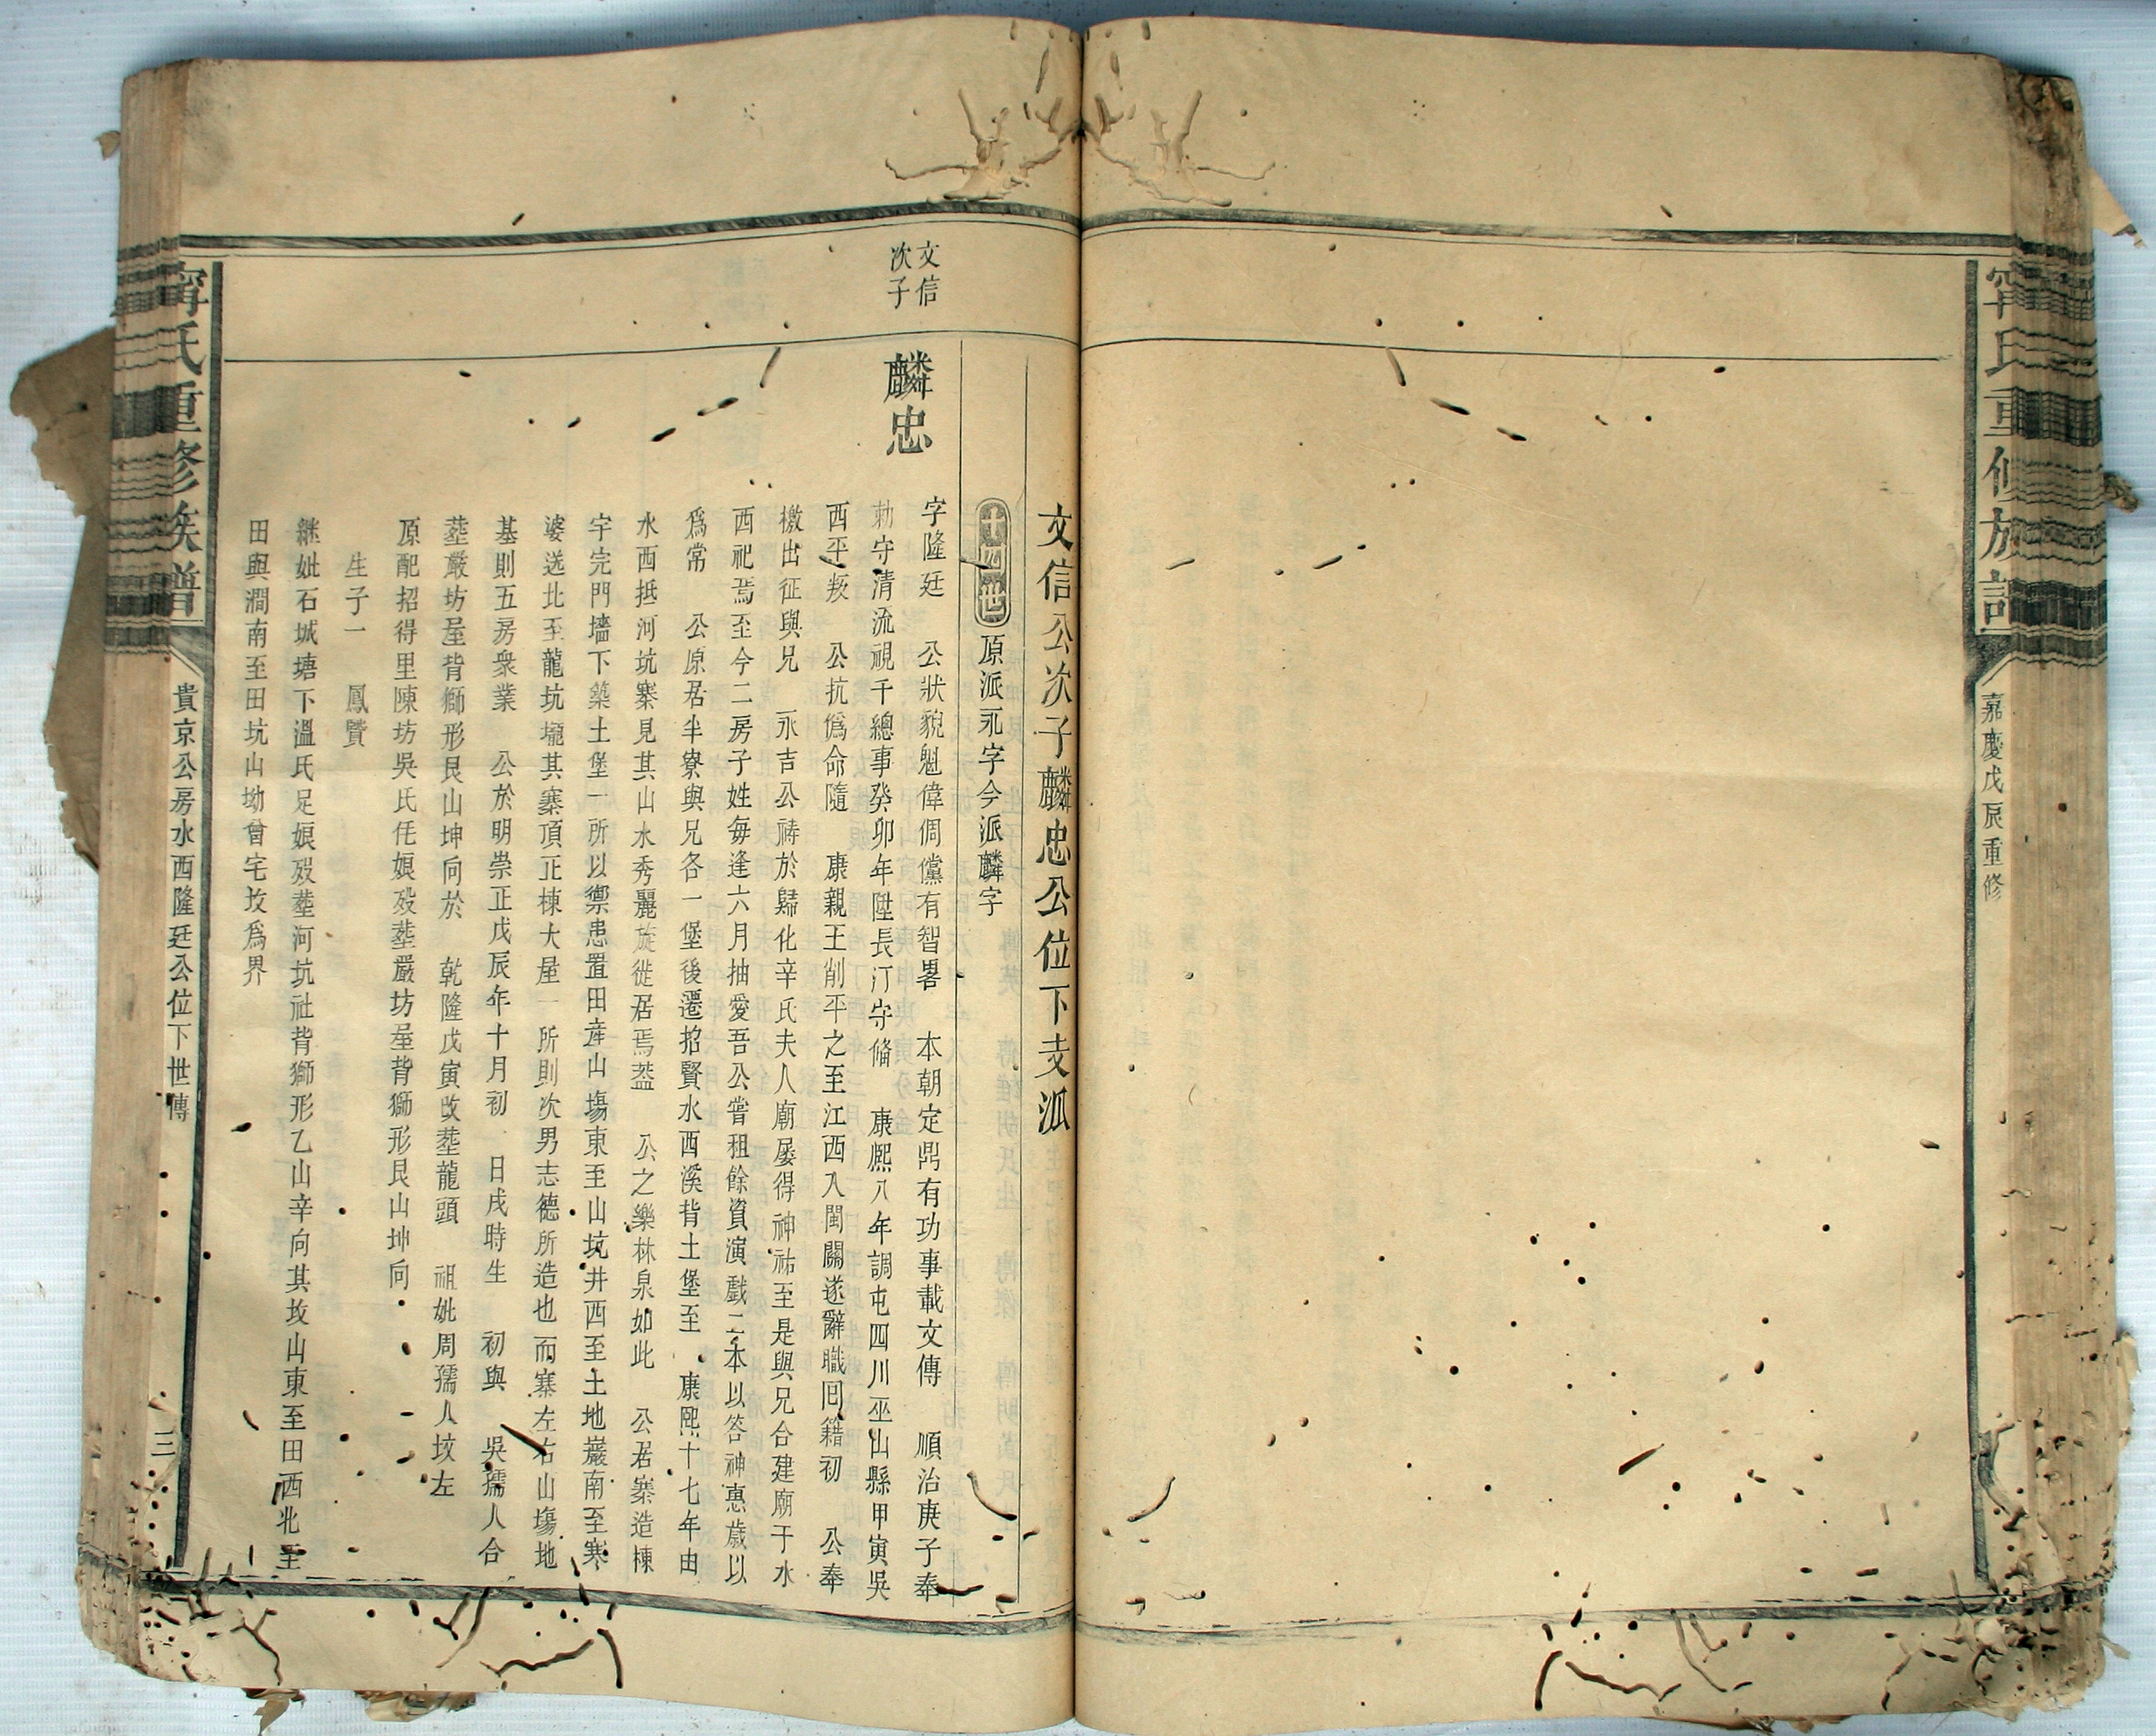 嘉慶戊辰重修
文信公次子麟忠公位下支派
十四世 原派永字今派麟字
文信次子
麟忠
字隆廷 公狀貌魁偉倜儻有智畧 本朝定鼎有功事載文傳 順治庚子奉
勅守清流視千總事癸卯年陞長汀守僃 康熈八年調屯四川巫山縣甲寅吳
西平叛 公抗僞命隨 康親王削平之至江西入閩關遂辭職囘籍初 公奉
檄出征與兄 永吉公禱於歸化辛氏夫人廟屢得神祐至是與兄合建廟于水
西祀焉至今二房子姓毎逢六月抽愛吾公嘗租餘資演戲二本以答神惠歲以
爲常 公原居半寮與兄各一堡後遷招賢水西溪背土堡至 康熈十七年由
水西抵河坑寨見其山水秀麗旋徙居焉葢 公之樂林泉如此 公居寨造棟
宇完門墻下築土堡一所以禦患置田産山塲東至山坑井西至土地巖南至寒
婆送北至龍坑壠其寨頂正棟大屋一所則次男志德所造也而寨左右山塲地
基則五房衆業 公於明崇正戊辰年十月初 日戌時生 初與 吳孺人合
塟嚴坊屋背獅形艮山坤向於 乾隆戊寅改塟龍頭 祖妣周孺人坟左
原配招得里陳坊吳氏任娘歿塟嚴坊屋背獅形艮山坤向
生子一 鳳贊
継妣石城塘下溫氏足娘歿塟河坑社背獅形乙山辛向其坟山東至田西北至
田與澗南至田坑山坳曾宅坟爲界
甯氏重修族譜 貴京公房水西隆廷公位下世傳 三